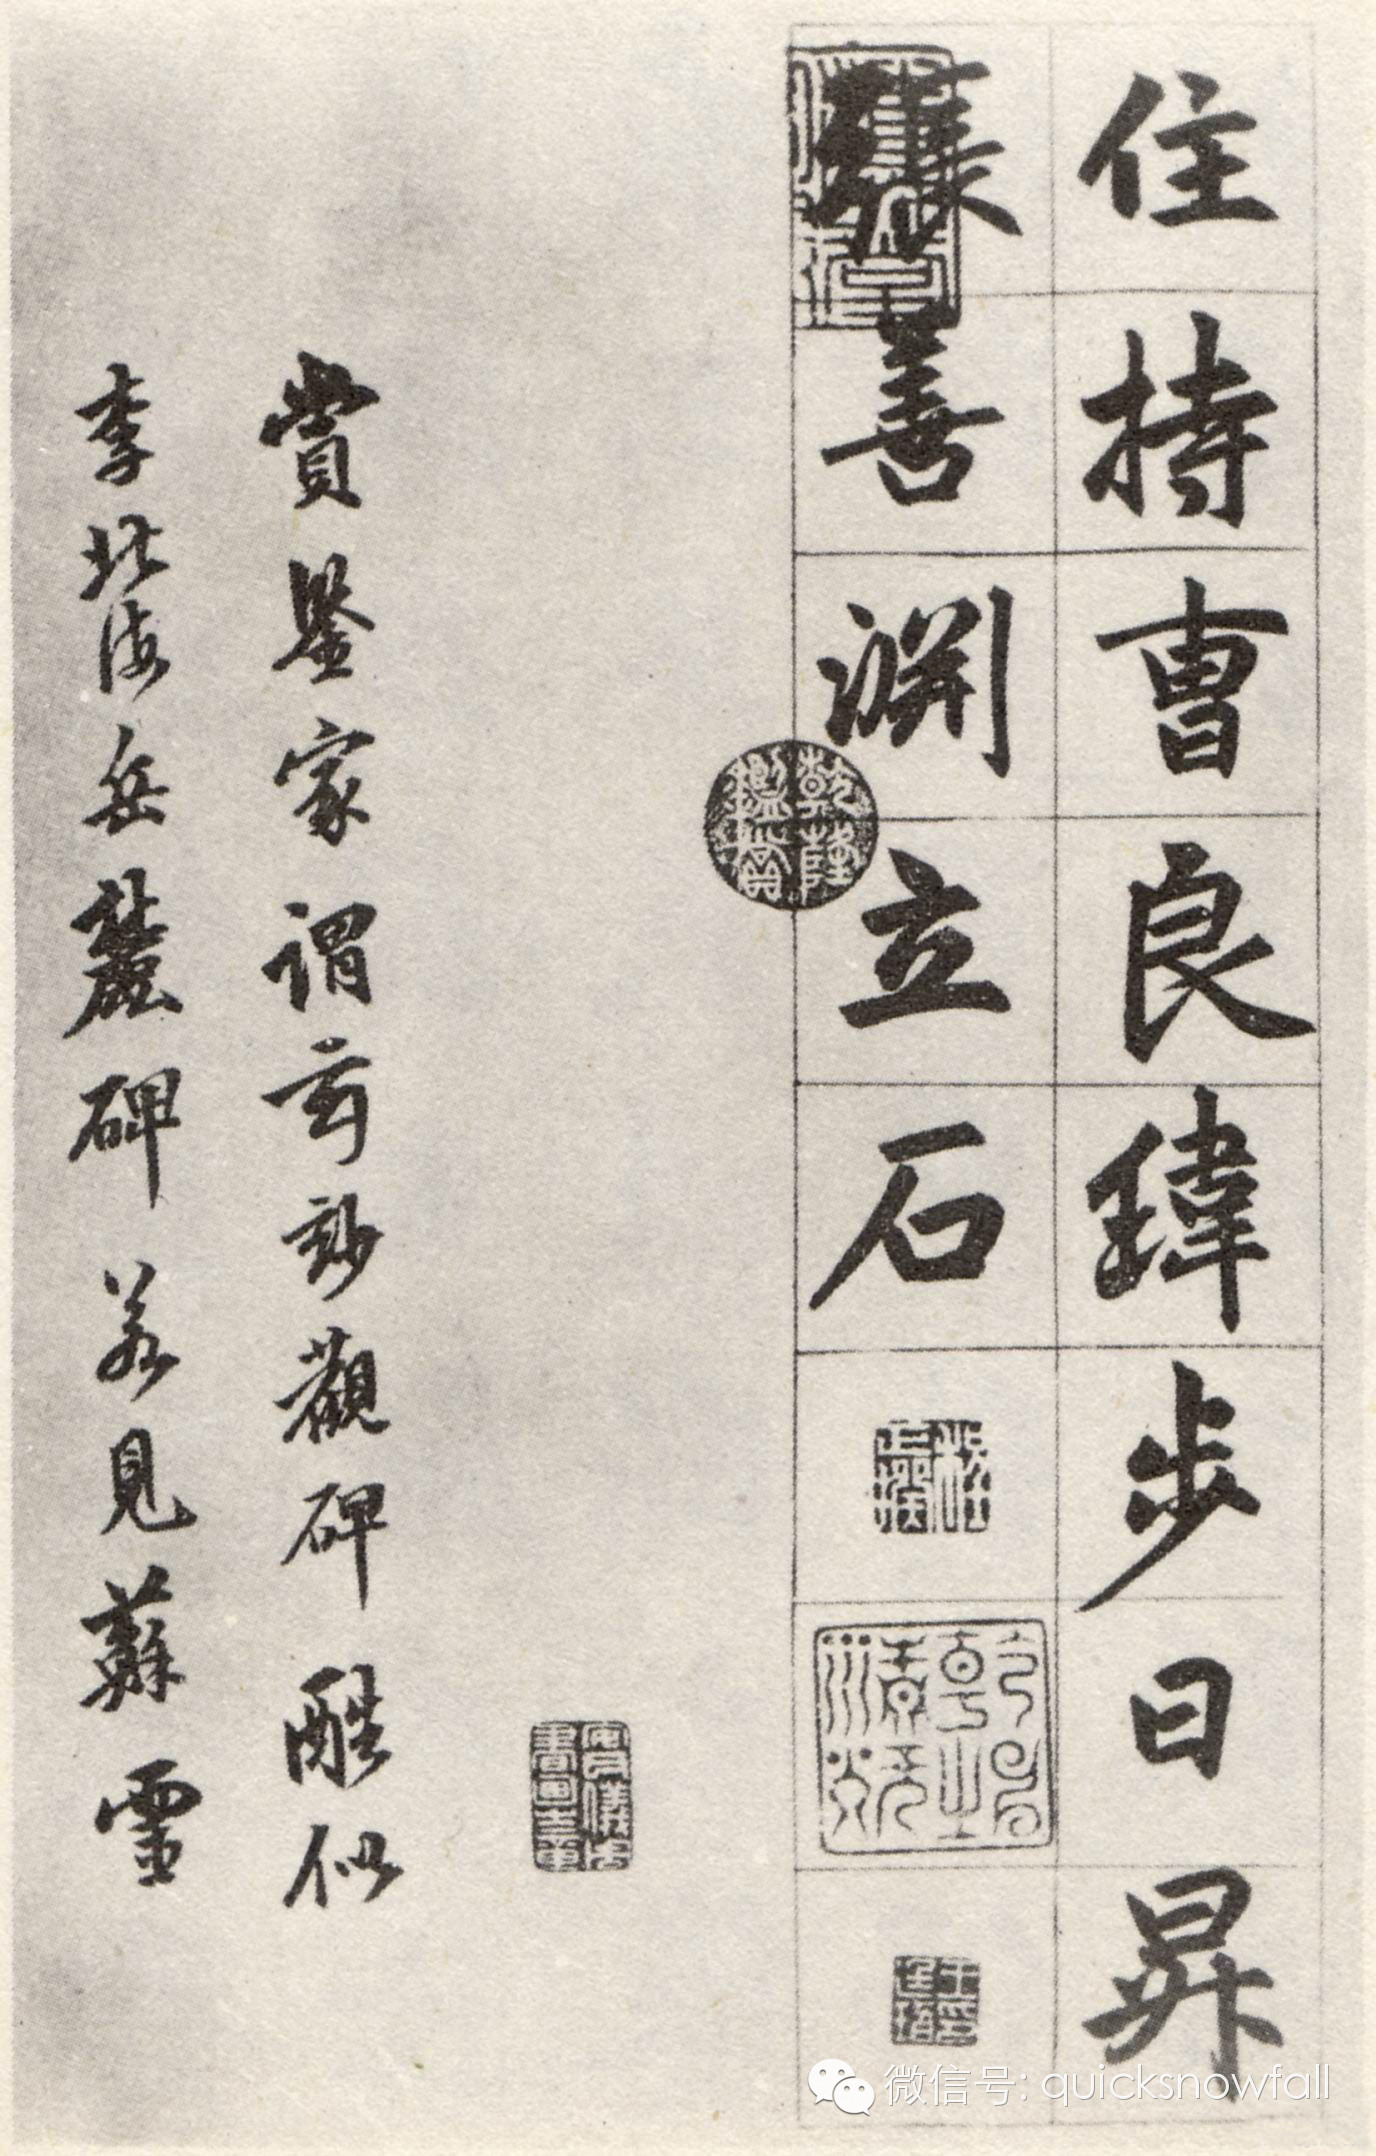 住持曹良瑋步日昇
張善淵立石
賞鑒家謂玄妙觀碑酷似
李北海岳麓碑若見蘇靈
乾隆鑑賞
微信号: quicksnowfall